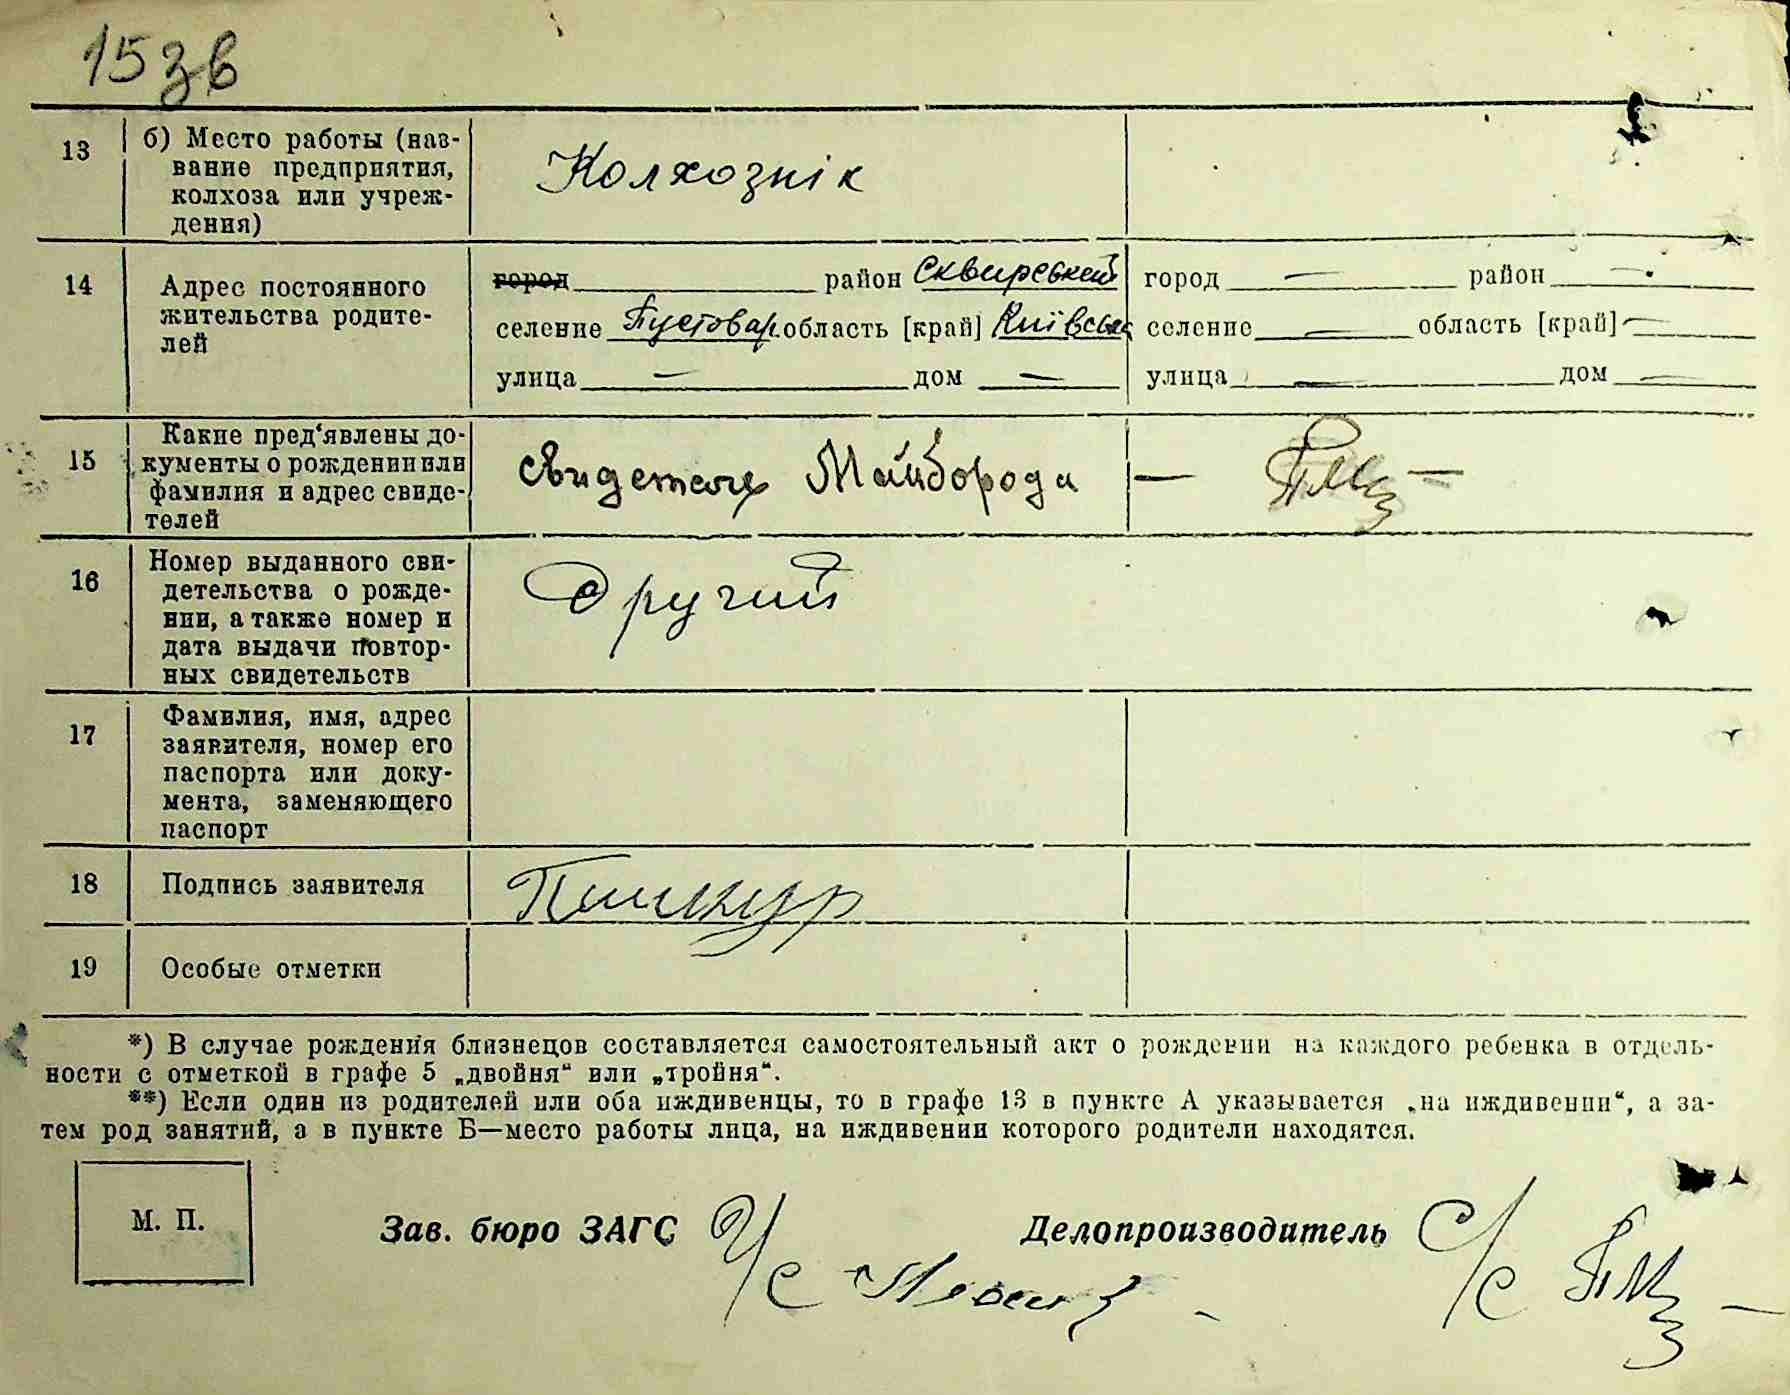 153в
13
б) Место работы (наз-
вание предприятия,
колхоза или учреж-
дения)
Колхознік
14
Адрес постоянного
жительства родите-
лей
город район Сквирський
селение Пустовар. область [край] Київська
улица — дом —
город — район —
селение — область [край] —
улица — дом —
15
Какие пред‘явлены до-
кументы о рождении или
фамилия и адрес свиде-
телей
Майборода
— —
16
Номер выданного сви-
детельства о рожде-
нии, а также номер и
дата выдачи повтор-
ных свидетельств
Другий
17
Фамилия, имя, адрес
заявителя, номер его
паспорта или доку-
мента, заменяющего
паспорт
18
Подпись заявителя
19
Особые отметки
*) В случае рождения близнецов составляется самостоятельный акт о рождении на каждого ребенка в отдель-
ности с отметкой в графе 5 „двойня“ или „тройня“.
**) Если один из родителей или оба иждивенцы, то в графе 13 в пункте А указывается „на иждивении“, а за-
тем род занятий, а в пункте Б—место работы лица, на иждивении которого родители находятся.
М. П.
Зав. бюро ЗАГС
Делопроизводитель С/с